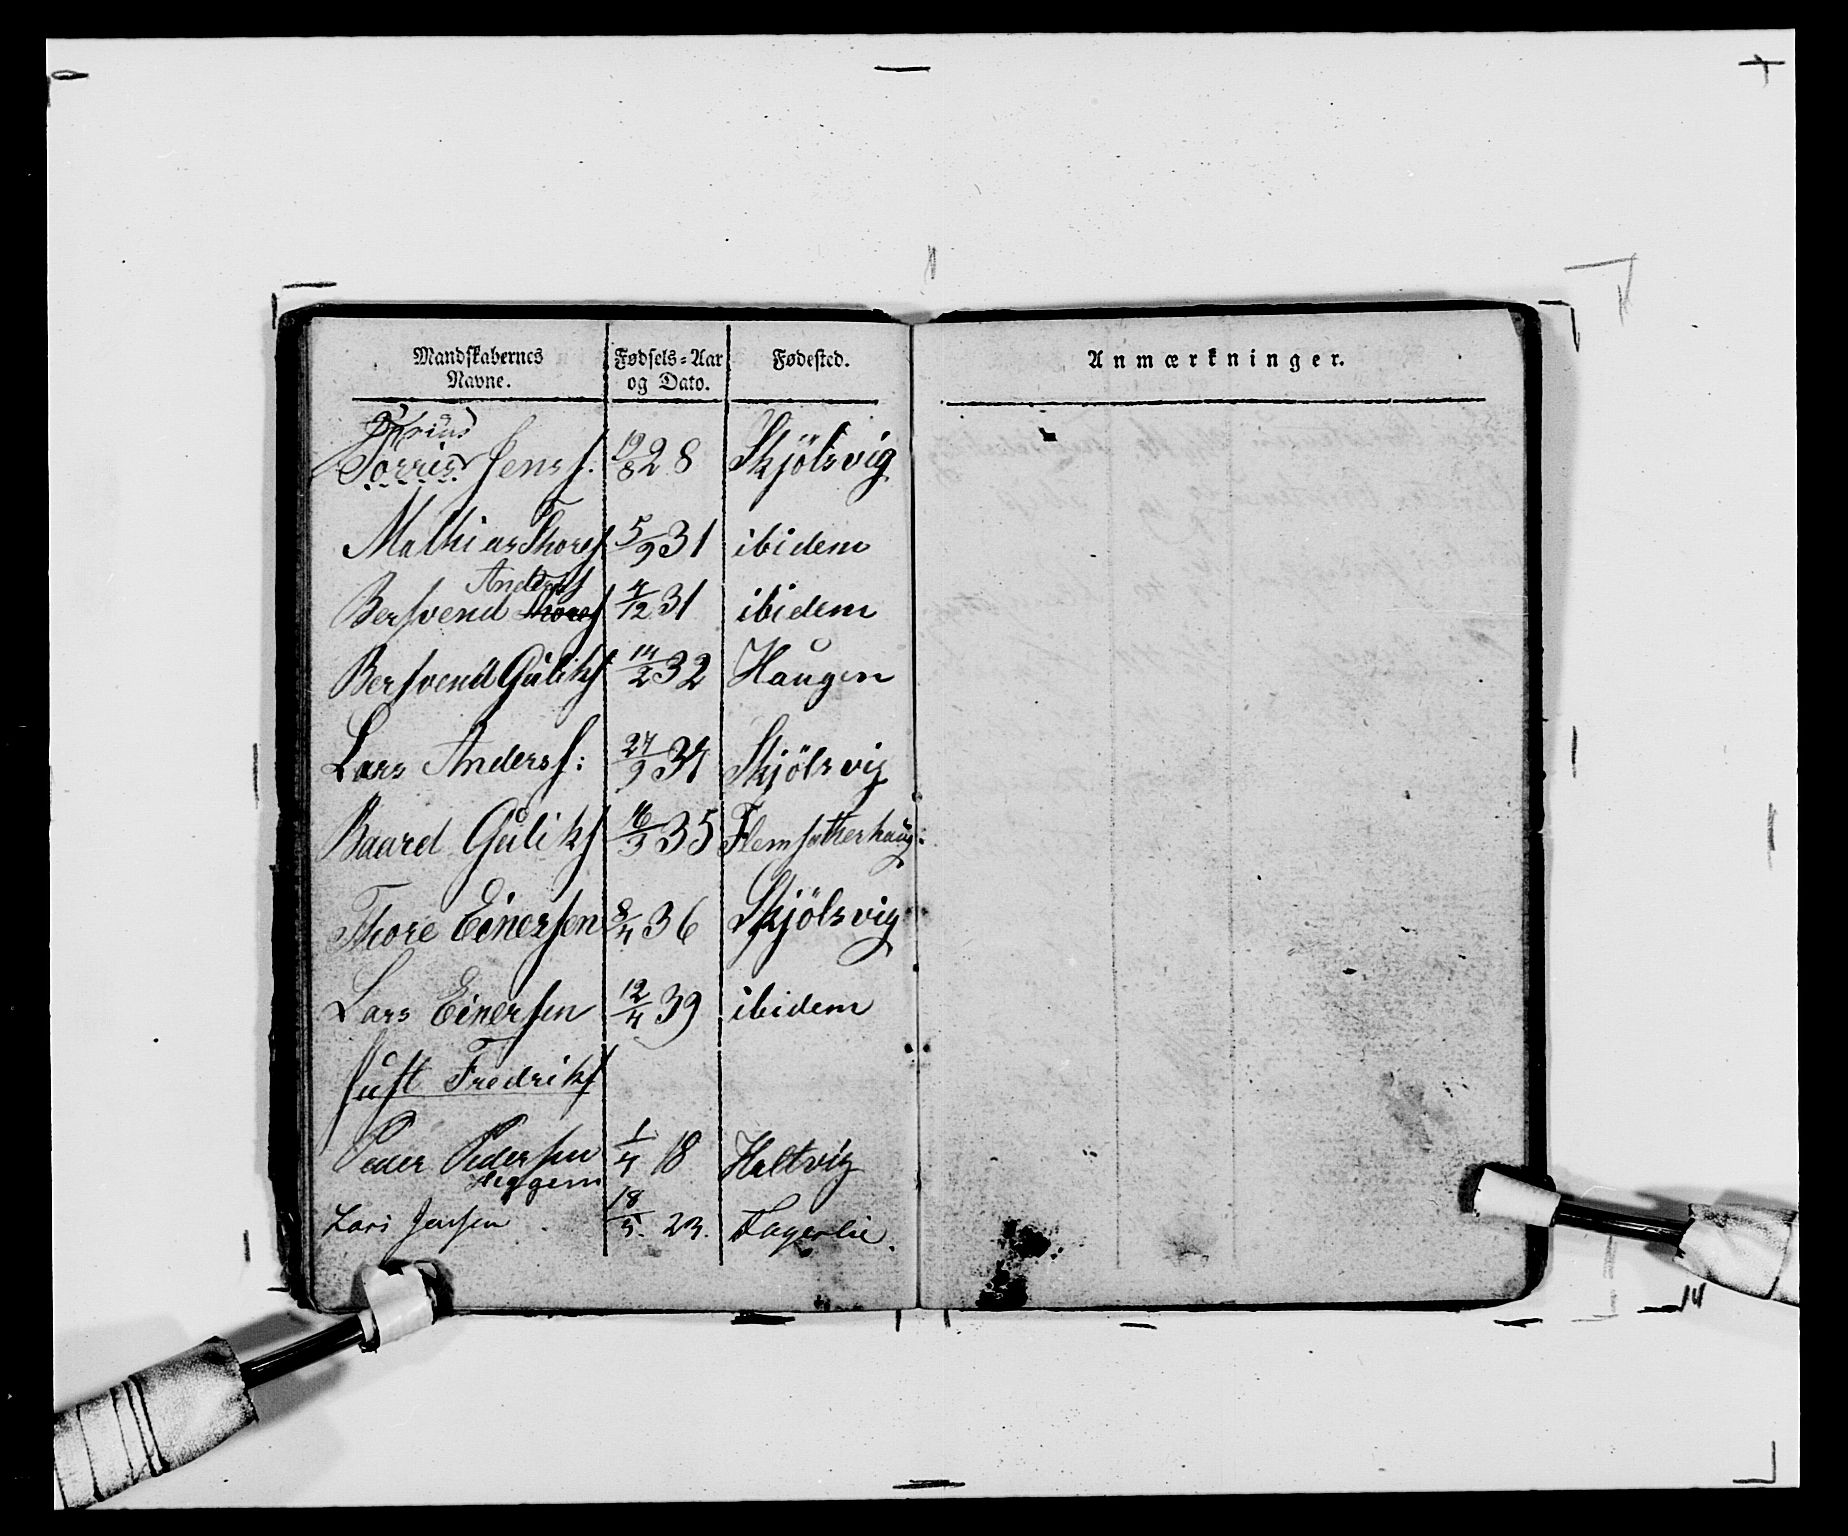 Mandskabernes Navne. Fødsels-Aar og Dato. Fødested. Anmærkninger.
Torris Jensf. 19/8 28 Skjölsvig
Mathias Thoresf 5/9 31 ibidem
Andersf
Bersvend Thoresf 4/12 31 ibidem
Bersvend Guliksf 14/2 32 Haugen
Lars Andersf: 27/9 34 Skjölsvig
Baard Guliksf 16/3 35 Flemsætherhaug:
Thore Einersen 8/4 36 Skjölsvig
Lars Einersen 12/4 39 ibidem
Just Fredriksf
Peder Pedersen 1/4 18 Heltvig
Heggem
Lars Jensen 18/5. 23. Fagerlie.
14